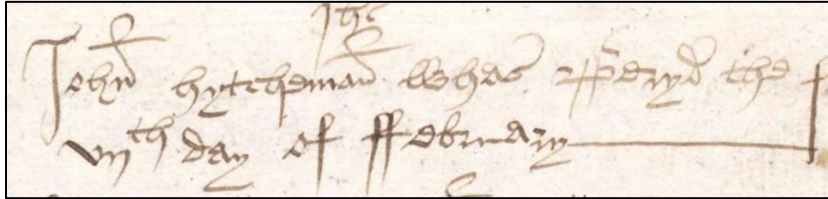 Ihc
John hytcheman whas xp̄enyd the
vijth day of ffebruary